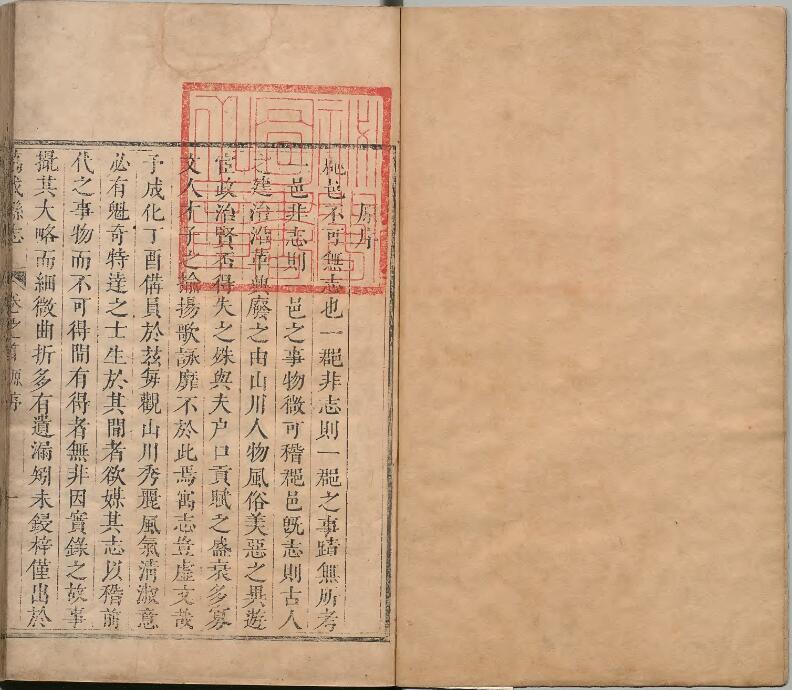 原序
郡邑不可無志也一郡非志則一郡之事蹟無所考
一邑非志則一邑之事物微可稽郡邑旣志則古人
之建治沿革興廢之由山川人物風俗美惡之異遊
宦政治賢否得失之殊與夫户口貢賦之盛衰多寡
文人才子之揄揚歌詠靡不於此焉寓志豈虛文哉
予成化丁酉備員於兹每觀山川秀麗風氣清淑意
必有魁奇特達之士生於其間者欲媒其志以稽前
代之事物而不可得間有得者無非因實錄之故事
撮其大略而細微曲折多有遺漏矧未鋟梓僅出於
縣志 卷之首 原序 一